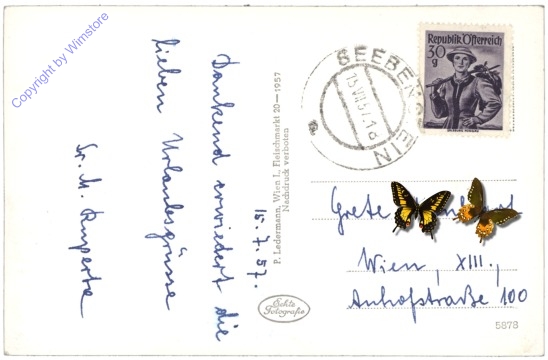 Copyright by Wimstore
Dankend erwiedert die
lieben Urlaubsgrüsse
Sr. M. Ruperta
15.7.57.
P. Ledermann, Wien I., Fleischmarkt 20—1957
Nachdruck verboten
Echte
Fotografie
SEEBENSTEIN
15.VII.57
Republik Österreich
30
g
Grete
Wien, XIII.,
Anhofstraße 100
5878